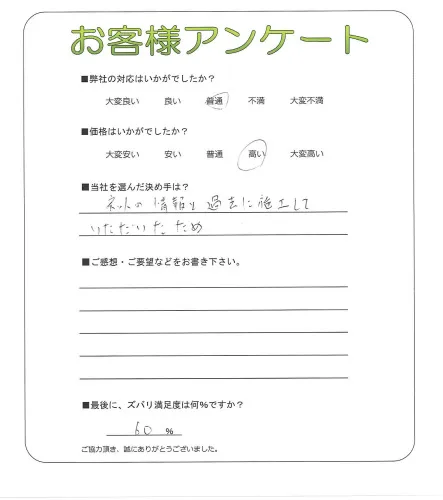 お客様アンケート
■弊社の対応はいかがでしたか？
大変良い 良い 普通 不満 大変不満
■価格はいかがでしたか？
大変安い 安い 普通 高い 大変高い
■当社を選んだ決め手は？
ネットの情報と過去に施工して
いただいたため
■ご感想・ご要望などをお書き下さい。
■最後に、ズバリ満足度は何％ですか？
60 ％
ご協力頂き、誠にありがとうございました。